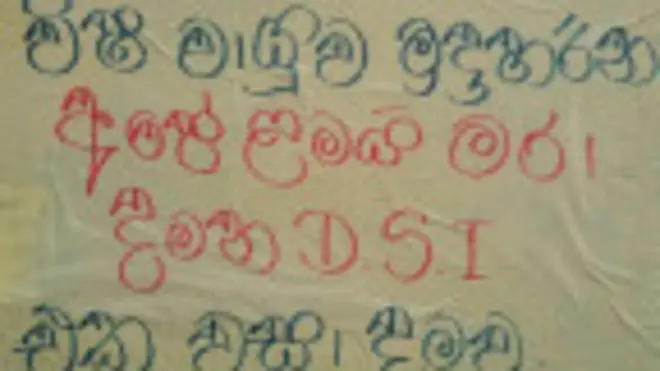 විෂ වායුව මුදාහරින
අපේ ළමයි මරා
දමන D.S.I
එක වසා දමව